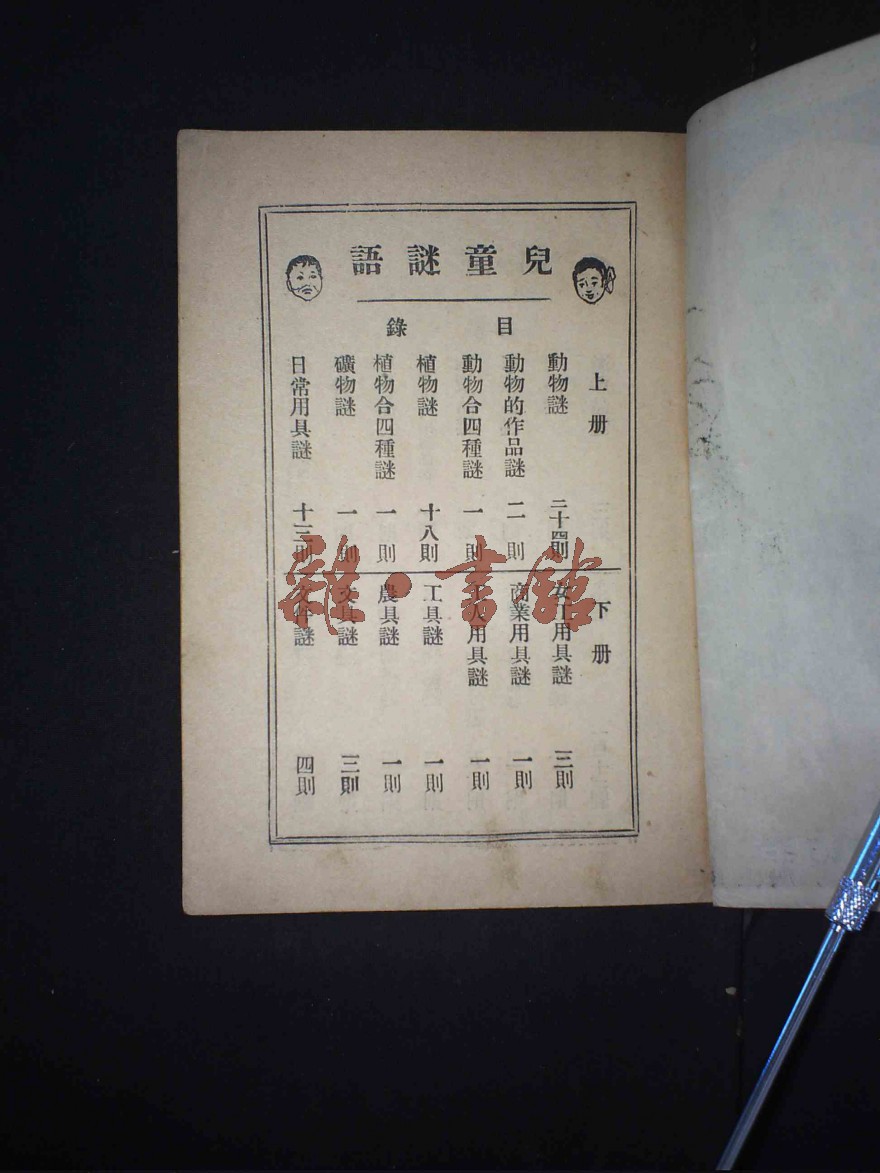 兒童謎語
目錄
上册
動物謎 二十四則
動物的作品謎 二則
動物合四種謎 一則
植物謎 十八則
植物合四種謎 一則
礦物謎 一則
日常用具謎 十三則
下册
女工用具謎 三則
商業用具謎 一則
人用具謎 一則
工具謎 一則
農具謎 一則
文具謎 三則
文件謎 四則
雜·書館